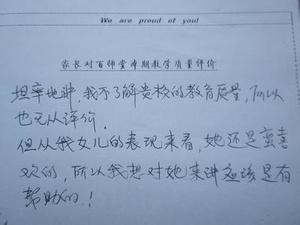 We are proud of you!
家长对百师堂本期教学质量评价
坦率地讲，我不了解贵校的教育质量，所以
也无从评价。
但从我女儿的表现来看，她还是蛮喜
欢的，所以我想对她来讲应该是有
帮助的！